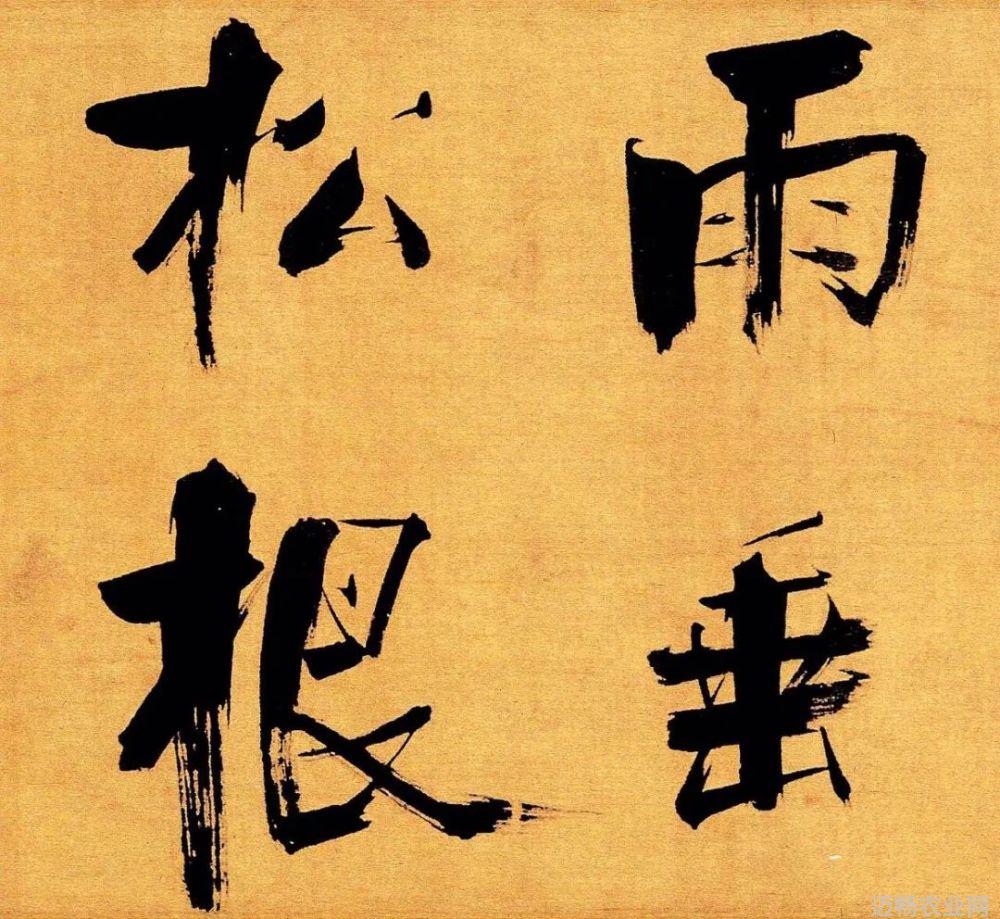 雨垂
松根
迈畅农业网